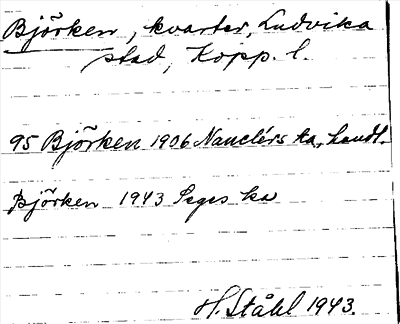 Björken, kvarter, Ludvika
stad, Kopp. l.
95 Björken 1906 Nanclérs ka, handl.
Björken 1943 Seges ka
H. Ståhl 1943.